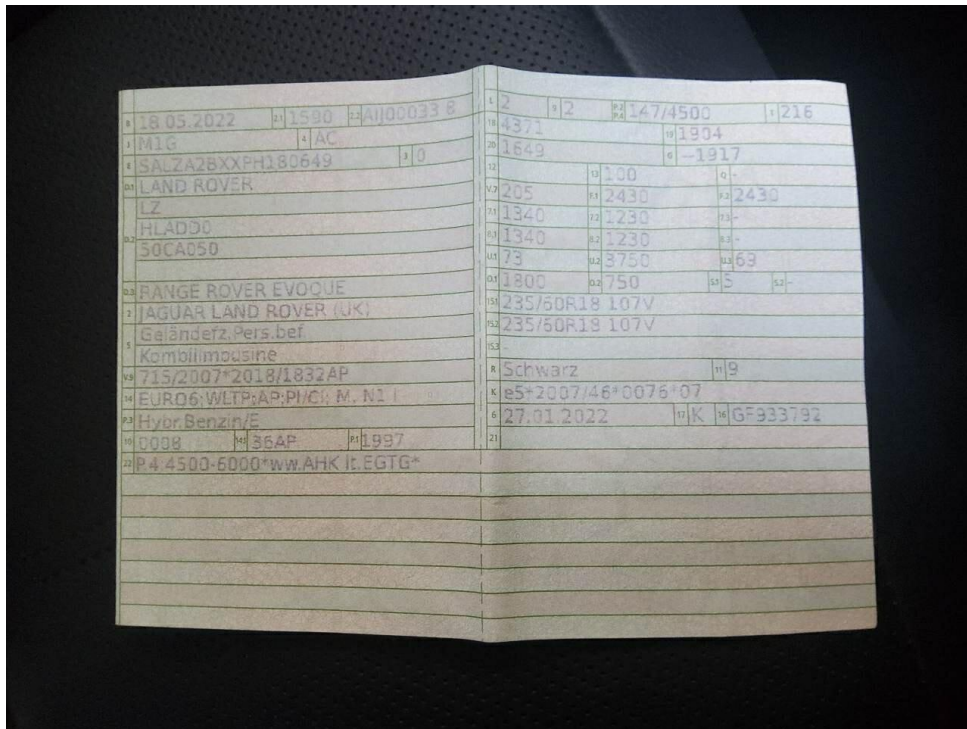 B 18.05.2022 2.1 1590 2.2 AIJ00033 8
J M1G 4 AC
E SALZA2BXXPH180649 3 0
D.1 LAND ROVER
LZ
D.2 HLADD0
50CA050
D.3 RANGE ROVER EVOQUE
2 JAGUAR LAND ROVER (UK)
5 Geländefz.Pers.bef.
Kombilimousine
V.9 715/2007*2018/1832AP
14 EURO6;WLTP;AP;PI/CI; M, N1 I
P.3 Hybr.Benzin/E
10 0008 14.1 36AP P.1 1997
22 P.4 4500-6000*ww.AHK lt.EGTG*
L 2 9 2 P.2 P.4 147/4500 T 216
18 4371 19 1904
20 1649 G -1917
12 13 100 Q -
V.7 205 F.1 2430 F.2 2430
7.1 1340 7.2 1230 7.3 -
8.1 1340 8.2 1230 8.3 -
U.1 73 U.2 3750 U.3 69
O.1 1800 O.2 750 S.1 5 S.2 -
15.1 235/60R18 107V
15.2 235/60R18 107V
15.3 -
R Schwarz 11 9
K e5*2007/46*0076*07
6 27.01.2022 17 K 16 GF933792
21